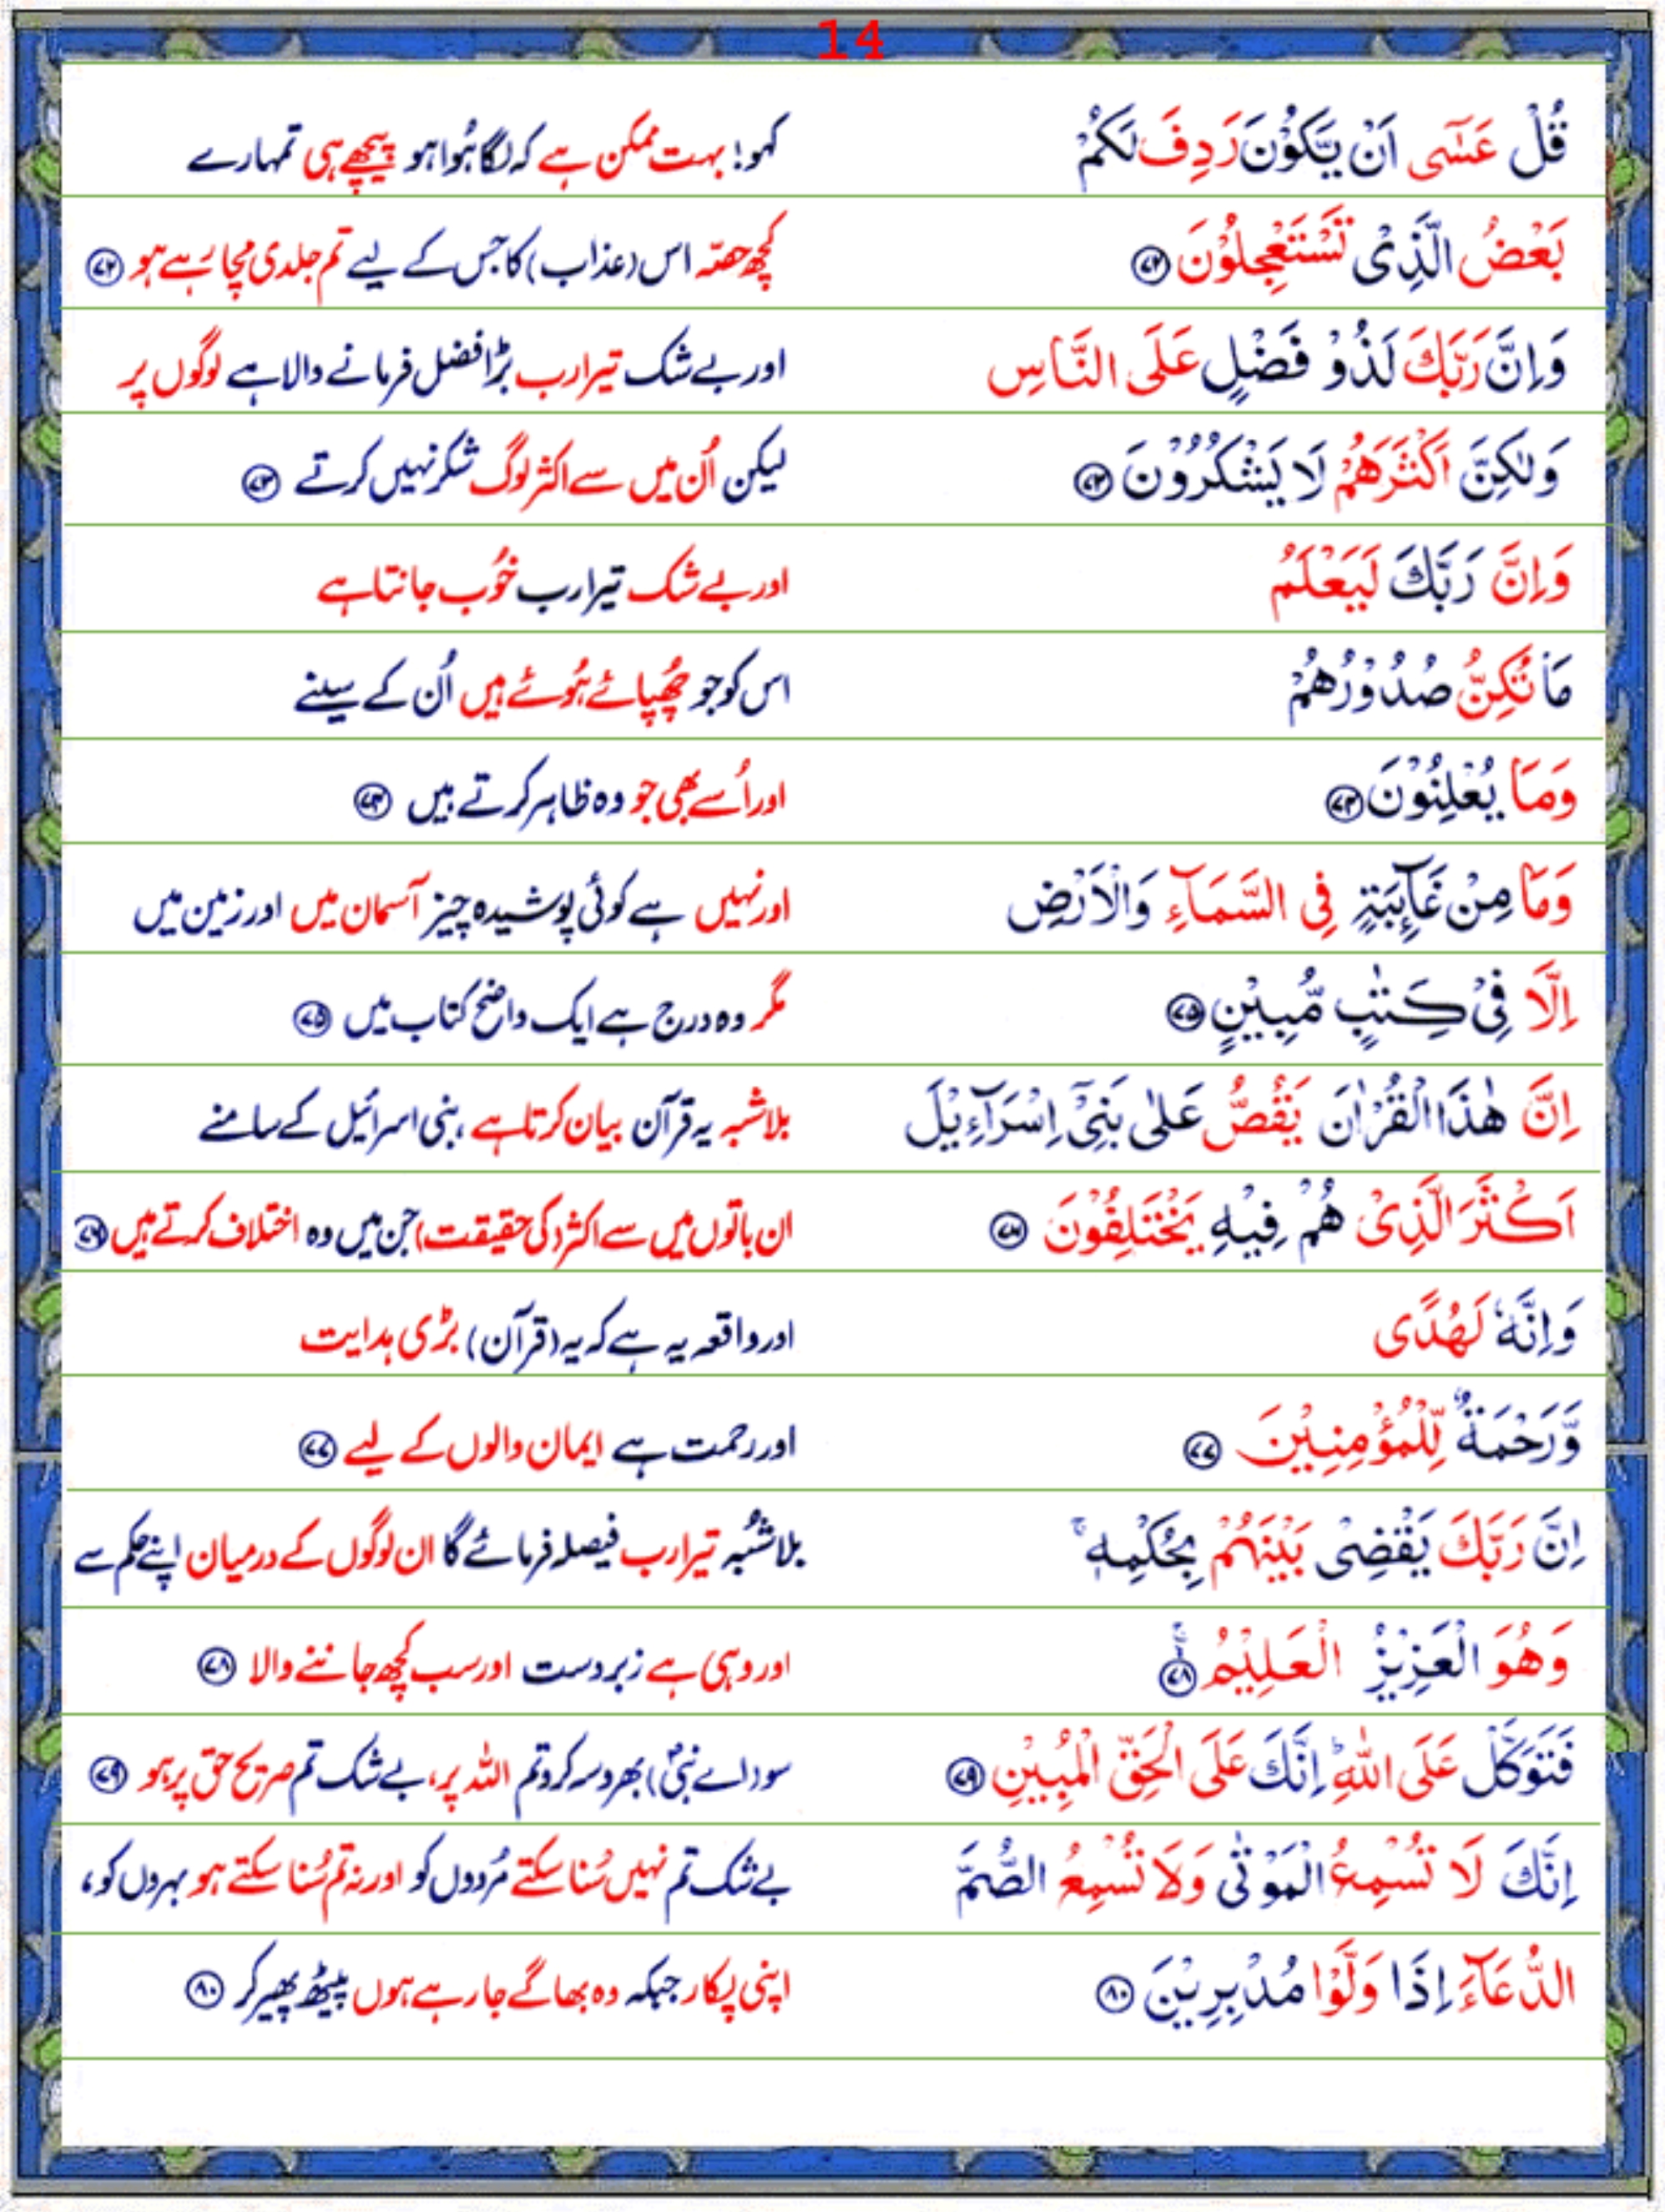 14
قُلْ عَسٰٓى اَنْ يَّكُوْنَ رَدِفَ لَكُمْ کہو! بہت ممکن ہے کہ لگا ہُوا ہو پیچھے ہی تمہارے
بَعْضُ الَّذِىْ تَسْتَعْجِلُوْنَ ۷۲ کچھ حصّہ اس (عذاب) کا جس کے لیے تم جلدی مچا رہے ہو ۷۲
وَاِنَّ رَبَّكَ لَذُوْ فَضْلٍ عَلَى النَّاسِ اور بے شک تیرا رب بڑا فضل فرمانے والا ہے لوگوں پر
وَلٰكِنَّ اَكْثَرَهُمْ لَا يَشْكُرُوْنَ ۷۳ لیکن اُن میں سے اکثر لوگ شکر نہیں کرتے ۷۳
وَاِنَّ رَبَّكَ لَيَعْلَمُ اور بے شک تیرا رب خُوب جانتا ہے
مَا تُكِنُّ صُدُوْرُهُمْ اس کو جو چُھپائے ہُوئے ہیں اُن کے سینے
وَمَا يُعْلِنُوْنَ ۷۴ اور اُسے بھی جو وہ ظاہر کرتے ہیں ۷۴
وَمَا مِنْ غَآئِبَةٍ فِى السَّمَآءِ وَالْاَرْضِ اور نہیں ہے کوئی پوشیدہ چیز آسمان میں اور زمین میں
اِلَّا فِىْ كِتٰبٍ مُّبِيْنٍ ۷۵ مگر وہ درج ہے ایک واضح کتاب میں ۷۵
اِنَّ هٰذَا الْقُرْاٰنَ يَقُصُّ عَلٰى بَنِىْٓ اِسْرَآءِيْلَ بلاشبہ یہ قرآن بیان کرتا ہے، بنی اسرائیل کے سامنے
اَكْثَرَ الَّذِىْ هُمْ فِيْهِ يَخْتَلِفُوْنَ ۷۶ ان باتوں میں سے اکثر (کی حقیقت) جن میں وہ اختلاف کرتے ہیں ۷۶
وَاِنَّهٗ لَهُدًى اور واقعہ یہ ہے کہ یہ (قرآن) بڑی ہدایت
وَّرَحْمَةٌ لِّلْمُؤْمِنِيْنَ ۷۷ اور رحمت ہے ایمان والوں کے لیے ۷۷
اِنَّ رَبَّكَ يَقْضِىْ بَيْنَهُمْ بِحُكْمِهٖ ۚ بلاشُبہ تیرا رب فیصلہ فرمائے گا ان لوگوں کے درمیان اپنے حکم سے
وَهُوَ الْعَزِيْزُ الْعَلِيْمُ ۷۸ اور وہی ہے زبردست اور سب کچھ جاننے والا ۷۸
فَتَوَكَّلْ عَلَى اللّٰهِ ؕ اِنَّكَ عَلَى الْحَقِّ الْمُبِيْنِ ۷۹ سو (اے نبیؐ) بھروسہ کرو تم اللہ پر، بے شک تم صریح حق پر ہو ۷۹
اِنَّكَ لَا تُسْمِعُ الْمَوْتٰى وَلَا تُسْمِعُ الصُّمَّ بے شک تم نہیں سُنا سکتے مُردوں کو اور نہ تم سُنا سکتے ہو بہروں کو،
الدُّعَآءَ اِذَا وَلَّوْا مُدْبِرِيْنَ ۸۰ اپنی پکار جبکہ وہ بھاگے جا رہے ہوں پیٹھ پھیر کر ۸۰